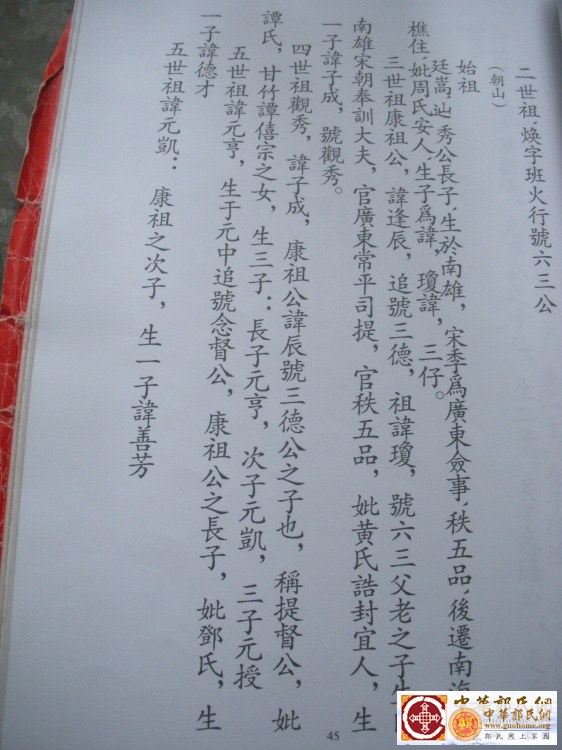 二世祖，煥字班火行號六三公
（朝山）
始祖
廷嵩，屾秀公長子，生於南雄，宋季為廣東僉事，秩五品，後遷南海
樵住，妣周氏安人，生子為諱，瓊諱，三仔。
三世祖康祖公，諱逢辰，追號三德，祖諱瓊，號六三父老之子生
南雄宋朝奉訓大夫，官廣東常平司提，官秩五品，妣黃氏誥封宜人，生
一子諱子成，號觀秀。
四世祖觀秀，諱子成，康祖公諱辰號三德公之子也，稱提督公，妣
譚氏，甘竹譚僖宗之女，生三子：長子元亨，次子元凱，三子元授
五世祖諱元亨，生于元中追號念督公，康祖公之長子，妣鄧氏，生
一子諱德才
五世祖諱元凱：康祖之次子，生一子諱善芳
45
中華郭氏網
中華郭氏網
www.guohome.org
郭氏網上家園